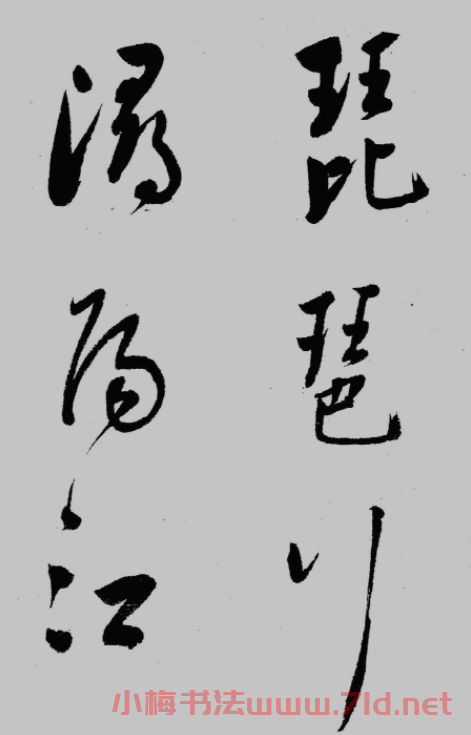 琵琶行
潯陽江
小梅书法www.7ld.net